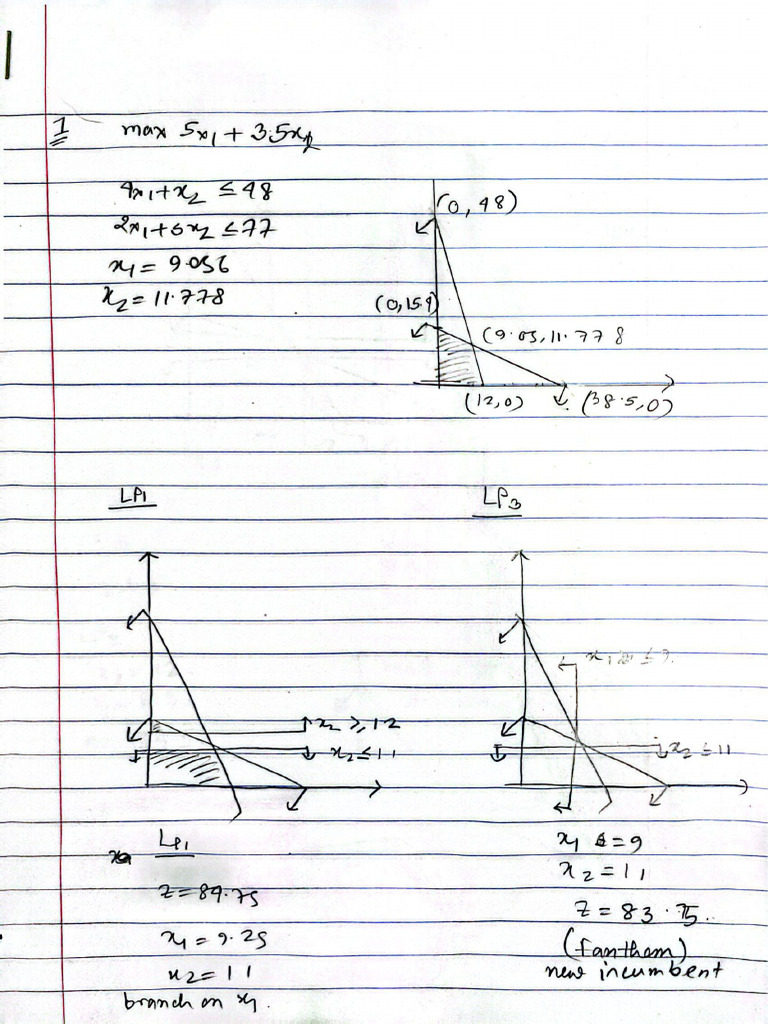 1 max 5x1 + 3.5x2
4x1+x2 ≤ 48
2x1+5x2 ≤ 77
x1 = 9.056
x2 = 11.778
(0,48)
(0,15.9)
(9.05,11.778
(12,0)
(38.5,0)
LP1
x2 ≥ 12
x2 ≤ 11
LP1
z=89.75
x1 = 9.25
x2 = 11
branch on x1.
LP3
x1 ≤ 9.
x2 ≤ 11
x1 = 9
x2 = 11
z = 83.75.
(fanthom)
new incumbent